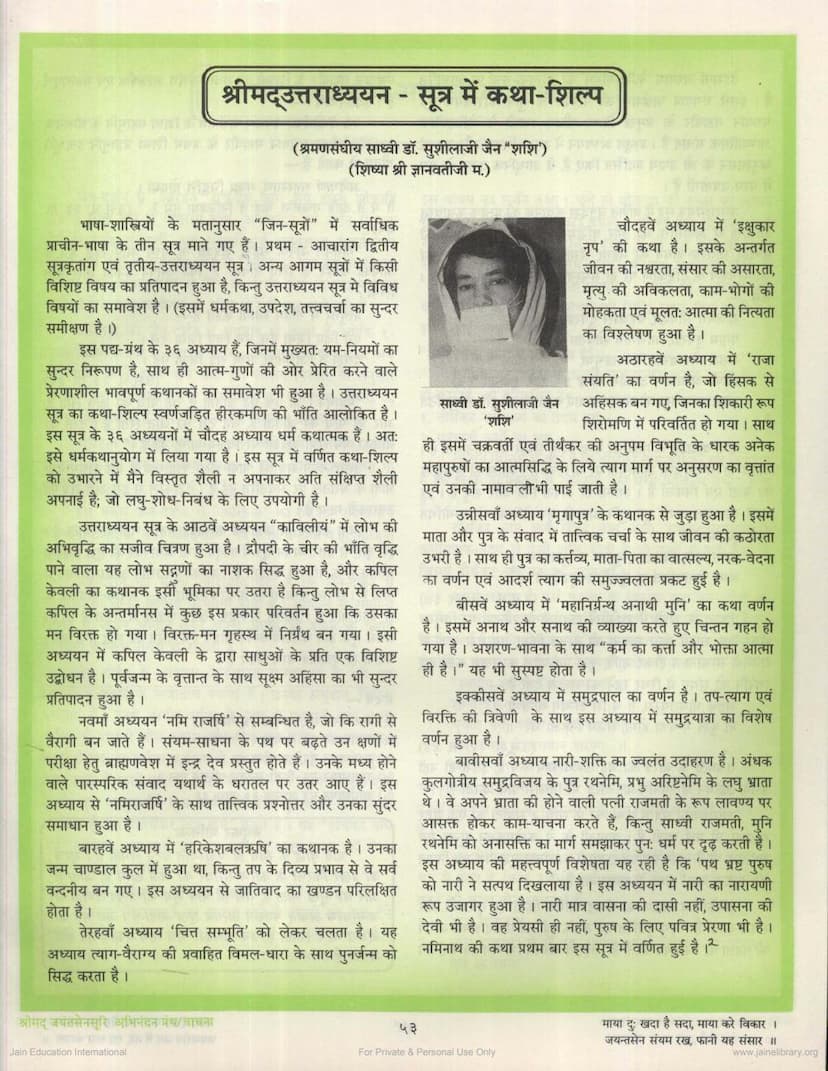 श्रीमद्उत्तराध्ययन - सूत्र में कथा-शिल्प
(श्रमणसंघीय साध्वी डॉ. सुशीलाजी जैन “शशि’)
(शिष्या श्री ज्ञानवतीजी म.)
भाषा-शास्त्रियों के मतानुसार “जिन-सूत्रों” में सर्वाधिक
प्राचीन-भाषा के तीन सूत्र माने गए हैं । प्रथम - आचारांग द्वितीय
सूत्रकृतांग एवं तृतीय-उत्तराध्ययन सूत्र । अन्य आगम सूत्रों में किसी
विशिष्ट विषय का प्रतिपादन हुआ है, किन्तु उत्तराध्ययन सूत्र मे विविध
विषयों का समावेश है । (इसमें धर्मकथा, उपदेश, तत्त्वचर्चा का सुन्दर
समीक्षण है ।)
इस पद्य-ग्रंथ के ३६ अध्याय हैं, जिनमें मुख्यत: यम-नियमों का
सुन्दर निरूपण है, साथ ही आत्म-गुणों की ओर प्रेरित करने वाले
प्रेरणाशील भावपूर्ण कथानकों का समावेश भी हुआ है । उत्तराध्ययन
सूत्र का कथा-शिल्प स्वर्णजड़ित हीरकमणि की भाँति आलोकित है ।
इस सूत्र के ३६ अध्ययनों में चौदह अध्याय धर्म कथात्मक हैं । अत:
इसे धर्मकथानुयोग में लिया गया है । इस सूत्र में वर्णित कथा-शिल्प
को उभारने में मैने विस्तृत शैली न अपनाकर अति संक्षिप्त शैली
अपनाई है; जो लघु-शोध-निबंध के लिए उपयोगी है ।
उत्तराध्ययन सूत्र के आठवें अध्ययन “काविलीयं” में लोभ की
अभिवृद्धि का सजीव चित्रण हुआ है । द्रौपदी के चीर की भाँति वृद्धि
पाने वाला यह लोभ सद्गुणों का नाशक सिद्ध हुआ है, और कपिल
केवली का कथानक इसी भूमिका पर उतरा है किन्तु लोभ से लिप्त
कपिल के अन्तर्मानस में कुछ इस प्रकार परिवर्तन हुआ कि उसका
मन विरक्त हो गया । विरक्त-मन गृहस्थ में निर्ग्रंथ बन गया । इसी
अध्ययन में कपिल केवली के द्वारा साधुओं के प्रति एक विशिष्ट
उद्बोधन है । पूर्वजन्म के वृत्तान्त के साथ सूक्ष्म अहिंसा का भी सुन्दर
प्रतिपादन हुआ है ।
नवमाँ अध्ययन ‘नमि राजर्षि’ से सम्बन्धित है, जो कि रागी से
वैरागी बन जाते हैं । संयम-साधना के पथ पर बढ़ते उन क्षणों में
परीक्षा हेतु ब्राह्मणवेश में इन्द्र देव प्रस्तुत होते हैं । उनके मध्य होने
वाले पारस्परिक संवाद यथार्थ के धरातल पर उतर आए हैं । इस
अध्याय से ‘नमिराजर्षि’ के साथ तात्त्विक प्रश्नोत्तर और उनका सुंदर
समाधान हुआ है ।
बारहवें अध्याय में ‘हरिकेशबलऋषि’ का कथानक है । उनका
जन्म चाण्डाल कुल में हुआ था, किन्तु तप के दिव्य प्रभाव से वे सर्व
वन्दनीय बन गए । इस अध्ययन से जातिवाद का खण्डन परिलक्षित
होता है ।
तेरहवाँ अध्याय ‘चित्त सम्भूति’ को लेकर चलता है । यह
अध्याय त्याग-वैराग्य की प्रवाहित विमल-धारा के साथ पुनर्जन्म को
सिद्ध करता है ।
साध्वी डॉ. सुशीलाजी जैन
‘शशि’
चौदहवें अध्याय में ‘इक्षुकार
नृप’ की कथा है । इसके अन्तर्गत
जीवन की नश्वरता, संसार की असारता,
मृत्यु की अविकलता, काम-भोगों की
मोहकता एवं मूलत: आत्मा की नित्यता
का विश्लेषण हुआ है ।
अठारहवें अध्याय में ‘राजा
संयति’ का वर्णन है, जो हिंसक से
अहिंसक बन गए, जिनका शिकारी रूप
शिरोमणि में परिवर्तित हो गया । साथ
ही इसमें चक्रवर्ती एवं तीर्थंकर की अनुपम विभूति के धारक अनेक
महापुरुषों का आत्मसिद्धि के लिये त्याग मार्ग पर अनुसरण का वृत्तांत
एवं उनकी नामावली भी पाई जाती है ।
उन्नीसवाँ अध्याय ‘मृगापुत्र’ के कथानक से जुड़ा हुआ है । इसमें
माता और पुत्र के संवाद में तात्त्विक चर्चा के साथ जीवन की कठोरता
उभरी है । साथ ही पुत्र का कर्त्तव्य, माता-पिता का वात्सल्य, नरक-वेदना
का वर्णन एवं आदर्श त्याग की समुज्ज्वलता प्रकट हुई है ।
बीसवें अध्याय में ‘महानिर्ग्रन्थ अनाथी मुनि’ का कथा वर्णन
है । इसमें अनाथ और सनाथ की व्याख्या करते हुए चिन्तन गहन हो
गया है । अशरण-भावना के साथ “कर्म का कर्त्ता और भोक्ता आत्मा
ही है ।” यह भी सुस्पष्ट होता है ।
इक्कीसवें अध्याय में समुद्रपाल का वर्णन है । तप-त्याग एवं
विरक्ति की त्रिवेणी के साथ इस अध्याय में समुद्रयात्रा का विशेष
वर्णन हुआ है ।
बावीसवाँ अध्याय नारी-शक्ति का ज्वलंत उदाहरण है । अंधक
कुलगोत्रीय समुद्रविजय के पुत्र रथनेमि, प्रभु अरिष्टनेमि के लघु भ्राता
थे । वे अपने भ्राता की होने वाली पत्नी राजमती के रूप लावण्य पर
आसक्त होकर काम-याचना करते हैं, किन्तु साध्वी राजमती, मुनि
रथनेमि को अनासक्ति का मार्ग समझाकर पुन: धर्म पर दृढ़ करती है ।
इस अध्याय की महत्त्वपूर्ण विशेषता यह रही है कि ‘पथ भ्रष्ट पुरुष
को नारी ने सत्पथ दिखलाया है । इस अध्ययन में नारी का नारायणी
रूप उजागर हुआ है । नारी मात्र वासना की दासी नहीं, उपासना की
देवी भी है । वह प्रेयसी ही नहीं, पुरुष के लिए पवित्र प्रेरणा भी है ।
नमिनाथ की कथा प्रथम बार इस सूत्र में वर्णित हुई है ।²
श्रीमद् जयंतसेनसूरि अभिनंदन ग्रंथ/वाचना
५३
माया दु: खदा है सदा, माया करे विकार ।
जयन्तसेन संयम रख, फानी यह संसार ॥
Jain Education International
For Private & Personal Use Only
www.jainelibrary.org